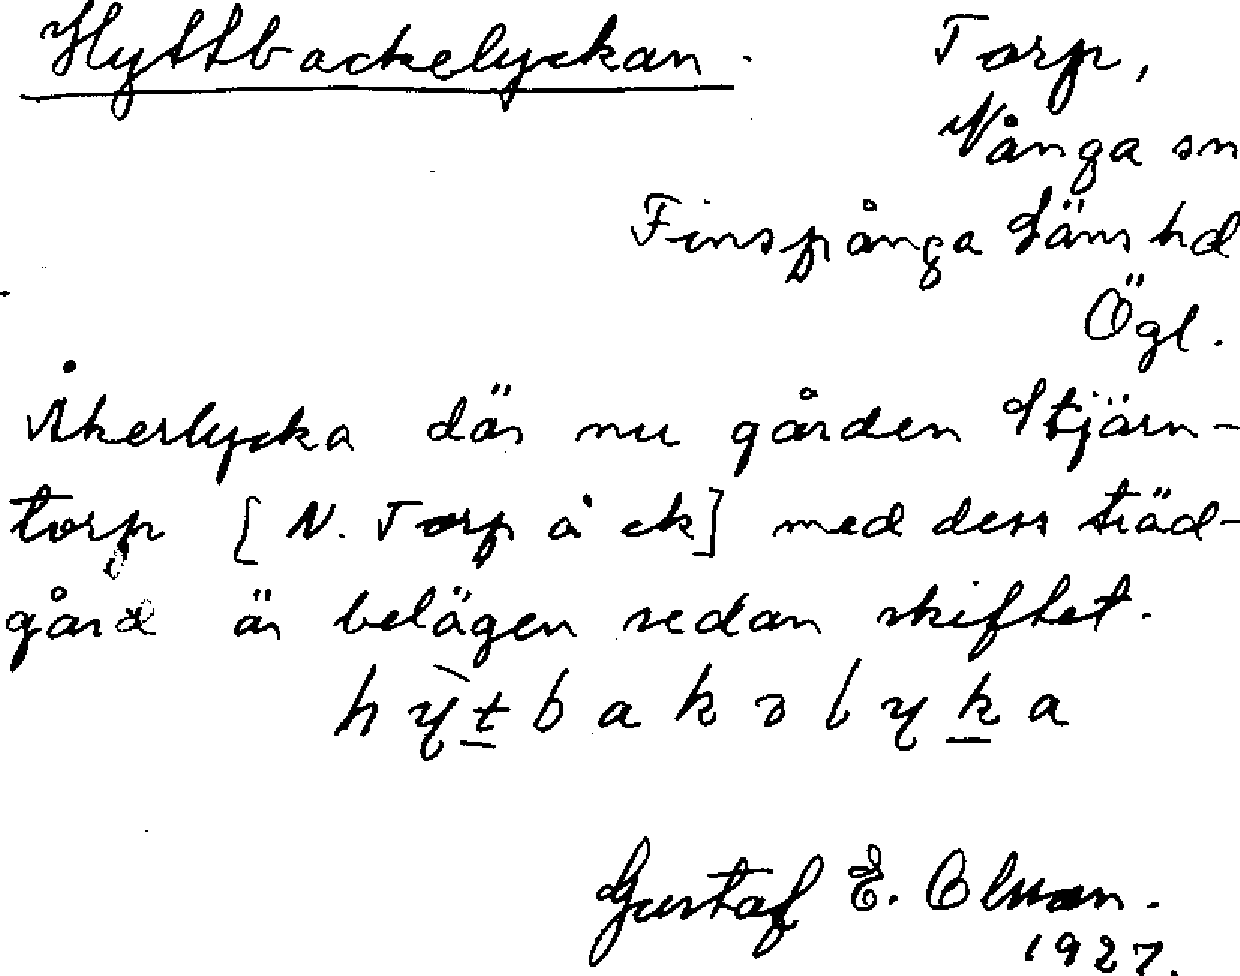 Hyttbackelyckan. Torp,
Vånga sn
Finspånga läns hd
Ögl.
Åkerlycka där nu gården Stjärn-
torp [N. Torp å ek] med dess träd-
gård är belägen sedan skiftet.
hỳ̖t̲bakəlyk̲a
Gustaf E. Olsson.
1927.